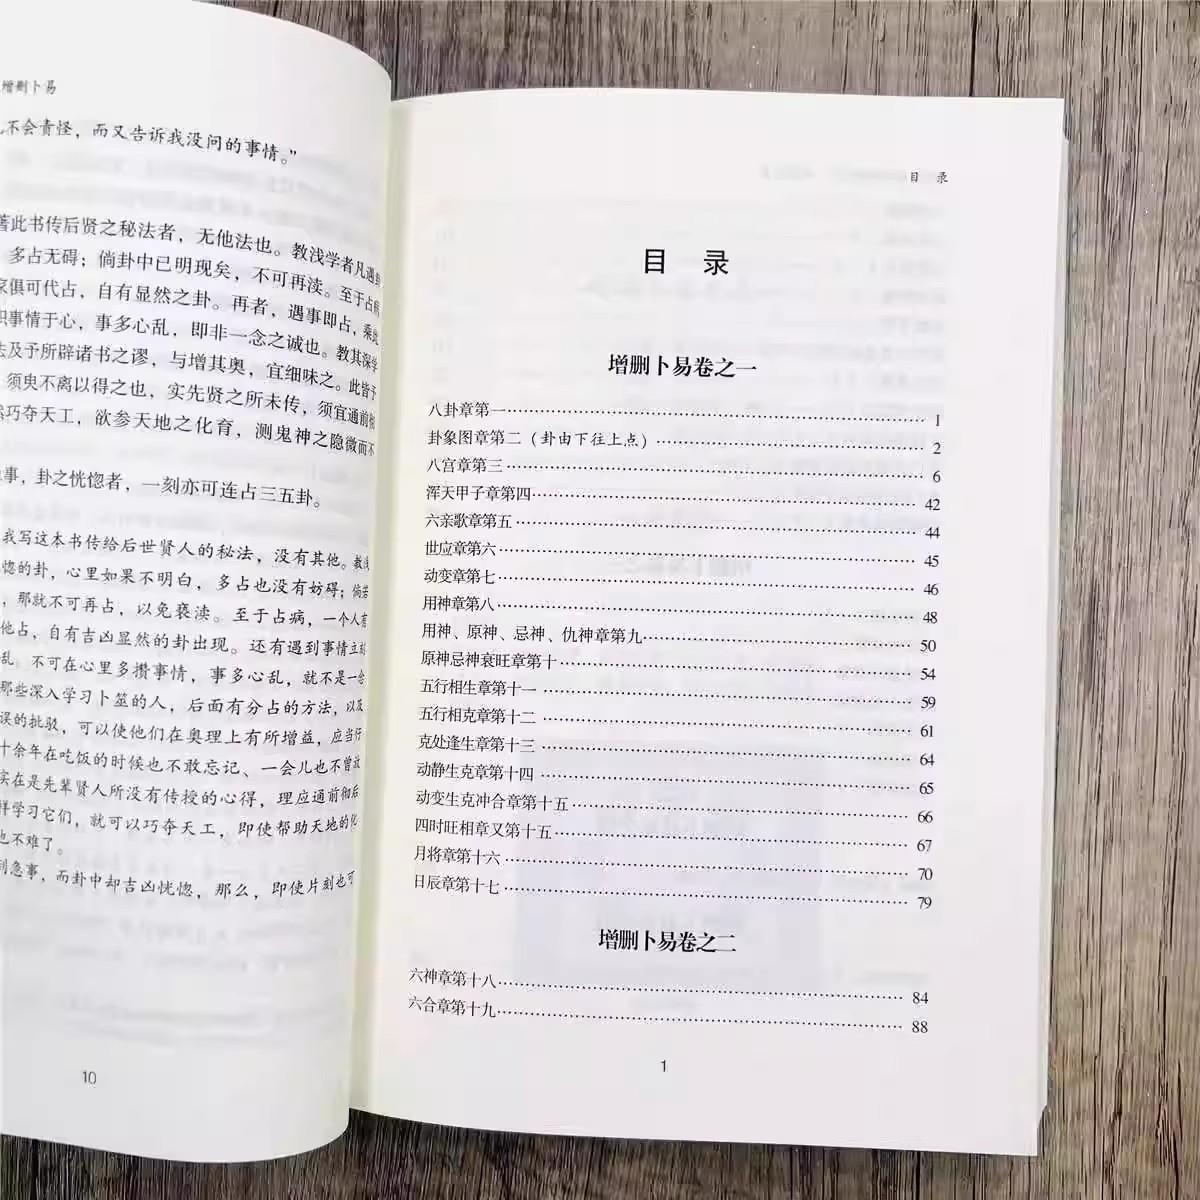 增删卜易
不会责怪，而又告诉我没问的事情。”
著此书传后贤之秘法者，无他法也。教浅学者凡遇卦
多占无碍；倘卦中已明现矣，不可再渎。至于占病
家俱可代占，自有显然之卦。再者，遇事即占，乘此
积事情于心，事多心乱，即非一念之诚也。教其深学
法及予所辟诸书之谬，与增其奥，宜细味之。此皆予
须臾不离以得之也，实先贤之所未传，须宜通前彻
然巧夺天工，欲参天地之化育，测鬼神之隐微而不
事，卦之恍惚者，一刻亦可连占三五卦。
我写这本书传给后世贤人的秘法，没有其他。教浅
惚的卦，心里如果不明白，多占也没有妨碍；倘若
，那就不可再占，以免亵渎。至于占病，一个人有
他占，自有吉凶显然的卦出现。还有遇到事情立刻
乱，不可在心里多攒事情，事多心乱，就不是一念
那些深入学习卜筮的人，后面有分占的方法，以及
误的批驳，可以使他们在奥理上有所增益，应当仔
十余年在吃饭的时候也不敢忘记、一会儿也不曾放
实在是先辈贤人所没有传授的心得，理应通前彻后
样学习它们，就可以巧夺天工，即使帮助天地的化
也不难了。
到急事，而卦中却吉凶恍惚，那么，即使片刻也可
10
目 录
目 录
增删卜易卷之一
八卦章第一 1
卦象图章第二（卦由下往上点） 2
八宫章第三 6
浑天甲子章第四 42
六亲歌章第五 44
世应章第六 45
动变章第七 46
用神章第八 48
用神、原神、忌神、仇神章第九 50
原神忌神衰旺章第十 54
五行相生章第十一 59
五行相克章第十二 61
克处逢生章第十三 64
动静生克章第十四 65
动变生克冲合章第十五 66
四时旺相章又第十五 67
月将章第十六 70
日辰章第十七 79
增删卜易卷之二
六神章第十八 84
六合章第十九 88
1